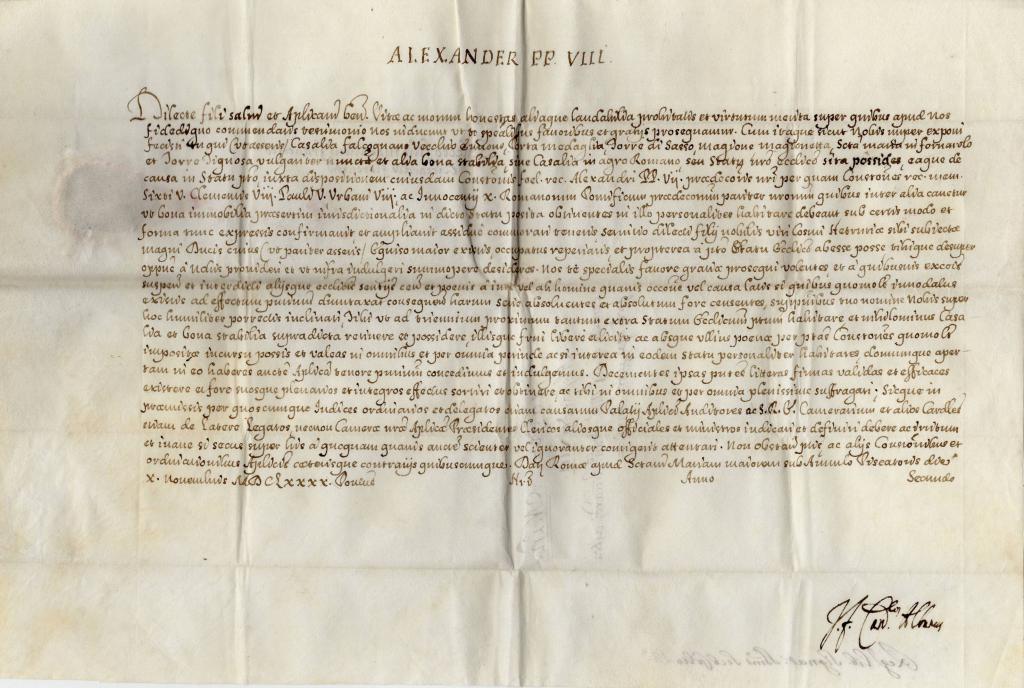 ALEXANDER PP. VIII.
Dilecte fili salut et Aplicam ben. Vitæ ac morum honestas aliaque laudabilia probitatis et virtutum merita super quibus apud nos
fidedigno commendaris testimonio nos inducunt ut te specialibus favoribus et gratijs prosequamur. Cum itaque sicut Nobis nuper exponi
fecisti (ut asseris) Casalia falcognani Vecchio Torre di Sasso, Magione Magionetta, Scta Maria in fornarolo
et Torre Tignosa vulgariter nuncta et alia bona stabilia sive Casalia in agro Romano seu Statu nro Ecclico sita possides, eaque de
causa in Statu pto iuxta dispositionem cuiusdam Constonis fel. rec. Alexandri PP. Vij. prædecoris nri per quam Constones rec. mem.
Sixti V. Clementis Viij. Pauli V. Urbani Viij. ac Innocentij X. Romanorum Pontificum prædecorum pariter nrorum quibus inter alia cavetur
ut bona immobilia præsertim iurisdictionalia in dicto Statu posita obtinentes in illo personaliter habitare debeant sub certis modo et
forma tunc expressis confirmavit et ampliavit assidue commorari tenearis servitio dilecti filij nobilis viri Cosmi Hetruriæ sibi subiectæ
magni Ducis cuius (ut pariter asseris) Equiso maior existis occupatus reperiaris et propterea a pto Statu Ecclico abesse posse tibique desuper
opportune a Nobis provideri et ut infra indulgeri summopere desideres. Nos te specialis favore gratiæ prosequi volentes et a quibusvis excois
suspens et interdicti alijsque ecclicis sentijs cens et poenis a iure vel ab homine quavis occone vel causa latis si quibus quomolt innodatus
existis ad effectum pntium dumtaxat consequend harum serie absolventes et absolutum fore censentes, supptibus tuo nomine Nobis super
hoc humiliter porrectis inclinati, Tibi ut ad triennium proximum tantum extra Statum Ecclicum ptum habitare et nihilominus Casa
lia et bona stabilia supradicta retinere et possidere illisque frui libere et licite ac absque ullius poenæ per ptas Constones quomolt
impositæ incursu possis et valeas in omnibus et per omnia perinde ac si interea in eodem Statu personaliter habitares, domumque aper-
tam in eo haberes aucte Aplica tenore pntium concedimus et indulgemus. Decernentes ipsas pntes litteras firmas validas et efficaces
existere et fore suosque plenarios et integros effectus sortiri et obtinere ac tibi in omnibus et per omnia plenissime suffragari; Sicque in
præmissis per quoscumque Iudices ordinarios et delegatos etiam causarum Palatij Aplici Auditores ac S.R.E. Camerarium et alios Cardles
etiam de Latere Legatos, necnon Cameræ nræ Aplicæ Præsidentes Clericos aliosque officiales et ministros iudicari et definiri debere ac irritum
et inane si secus super his a quoquam quavis aucte scienter vel ignoranter contigerit attentari. Non obstan pmis ac alijs Constonibus et
ordinationibus Aplicis cæterisque contrarijs quibuscumque. Dat Romæ apud Sctam Mariam maiorem sub Annulo Piscatoris die
X. Novembris MDCLXXXX. Pontus Nri Anno Secundo